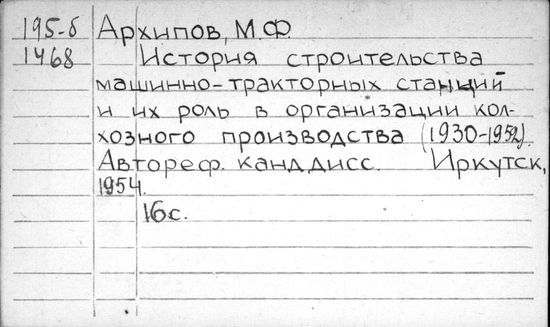 195-б Архипов, М.Ф.
1468 История строительства
машинно-тракторных станций
и их роль в организации кол-
хозного производства (1930-1952).
Автореф. канд дисс. Иркутск,
1954.
16с.